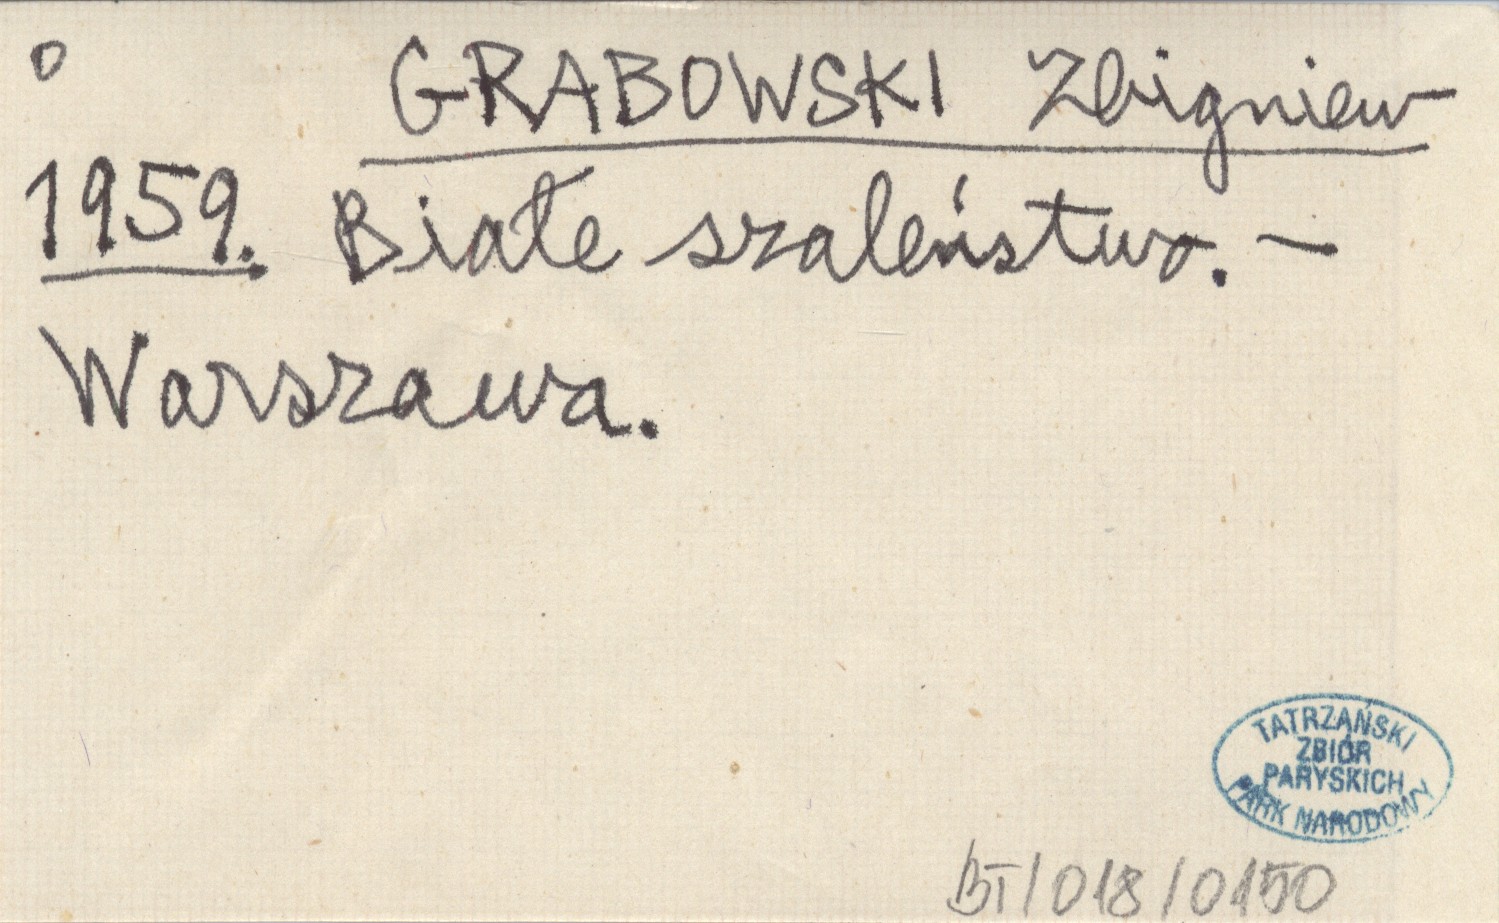 o GRABOWSKI Zbigniew
1959. Białe szaleństwo. —
Warszawa.
TATRZAŃSKI
ZBIÓR
PARYSKICH
PARK NARODOWY
BT/018/0150